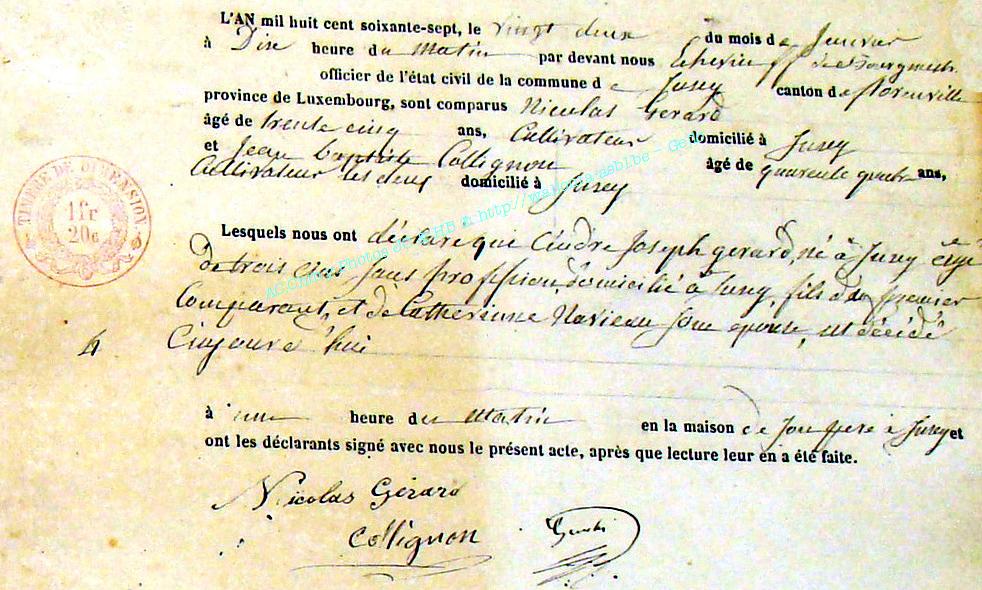 L'AN mil huit cent soixante-sept, le vingt deux du mois de Janvier
à Dix heure du Matin par devant nous Echevin ff de Bourgmestr.
officier de l'état civil de la commune de Jusey canton de florenville
province de Luxembourg, sont comparus Nicolas Gerard
âgé de trente cinq ans, Cultivateur domicilié à Jusey
et Jean baptiste Collignon âgé de quarante quatre ans,
Cultivateur les deux domicilié à Jusey
TIMBRE DE DIMENSION
1fr
20c
Lesquels nous ont déclaré que Joseph gerard, né à Jusey âgé
de trois ans sans proffesion, domicilié à Jusey, fils du premier
Comparant, et de Catherinne Navieau son epouse, est décédé
Cejourd'hui
à une heure du Matin en la maison de son pere à Jusey et
ont les déclarants signé avec nous le présent acte, après que lecture leur en a été faite.
Nicolas Gérard
Collignon